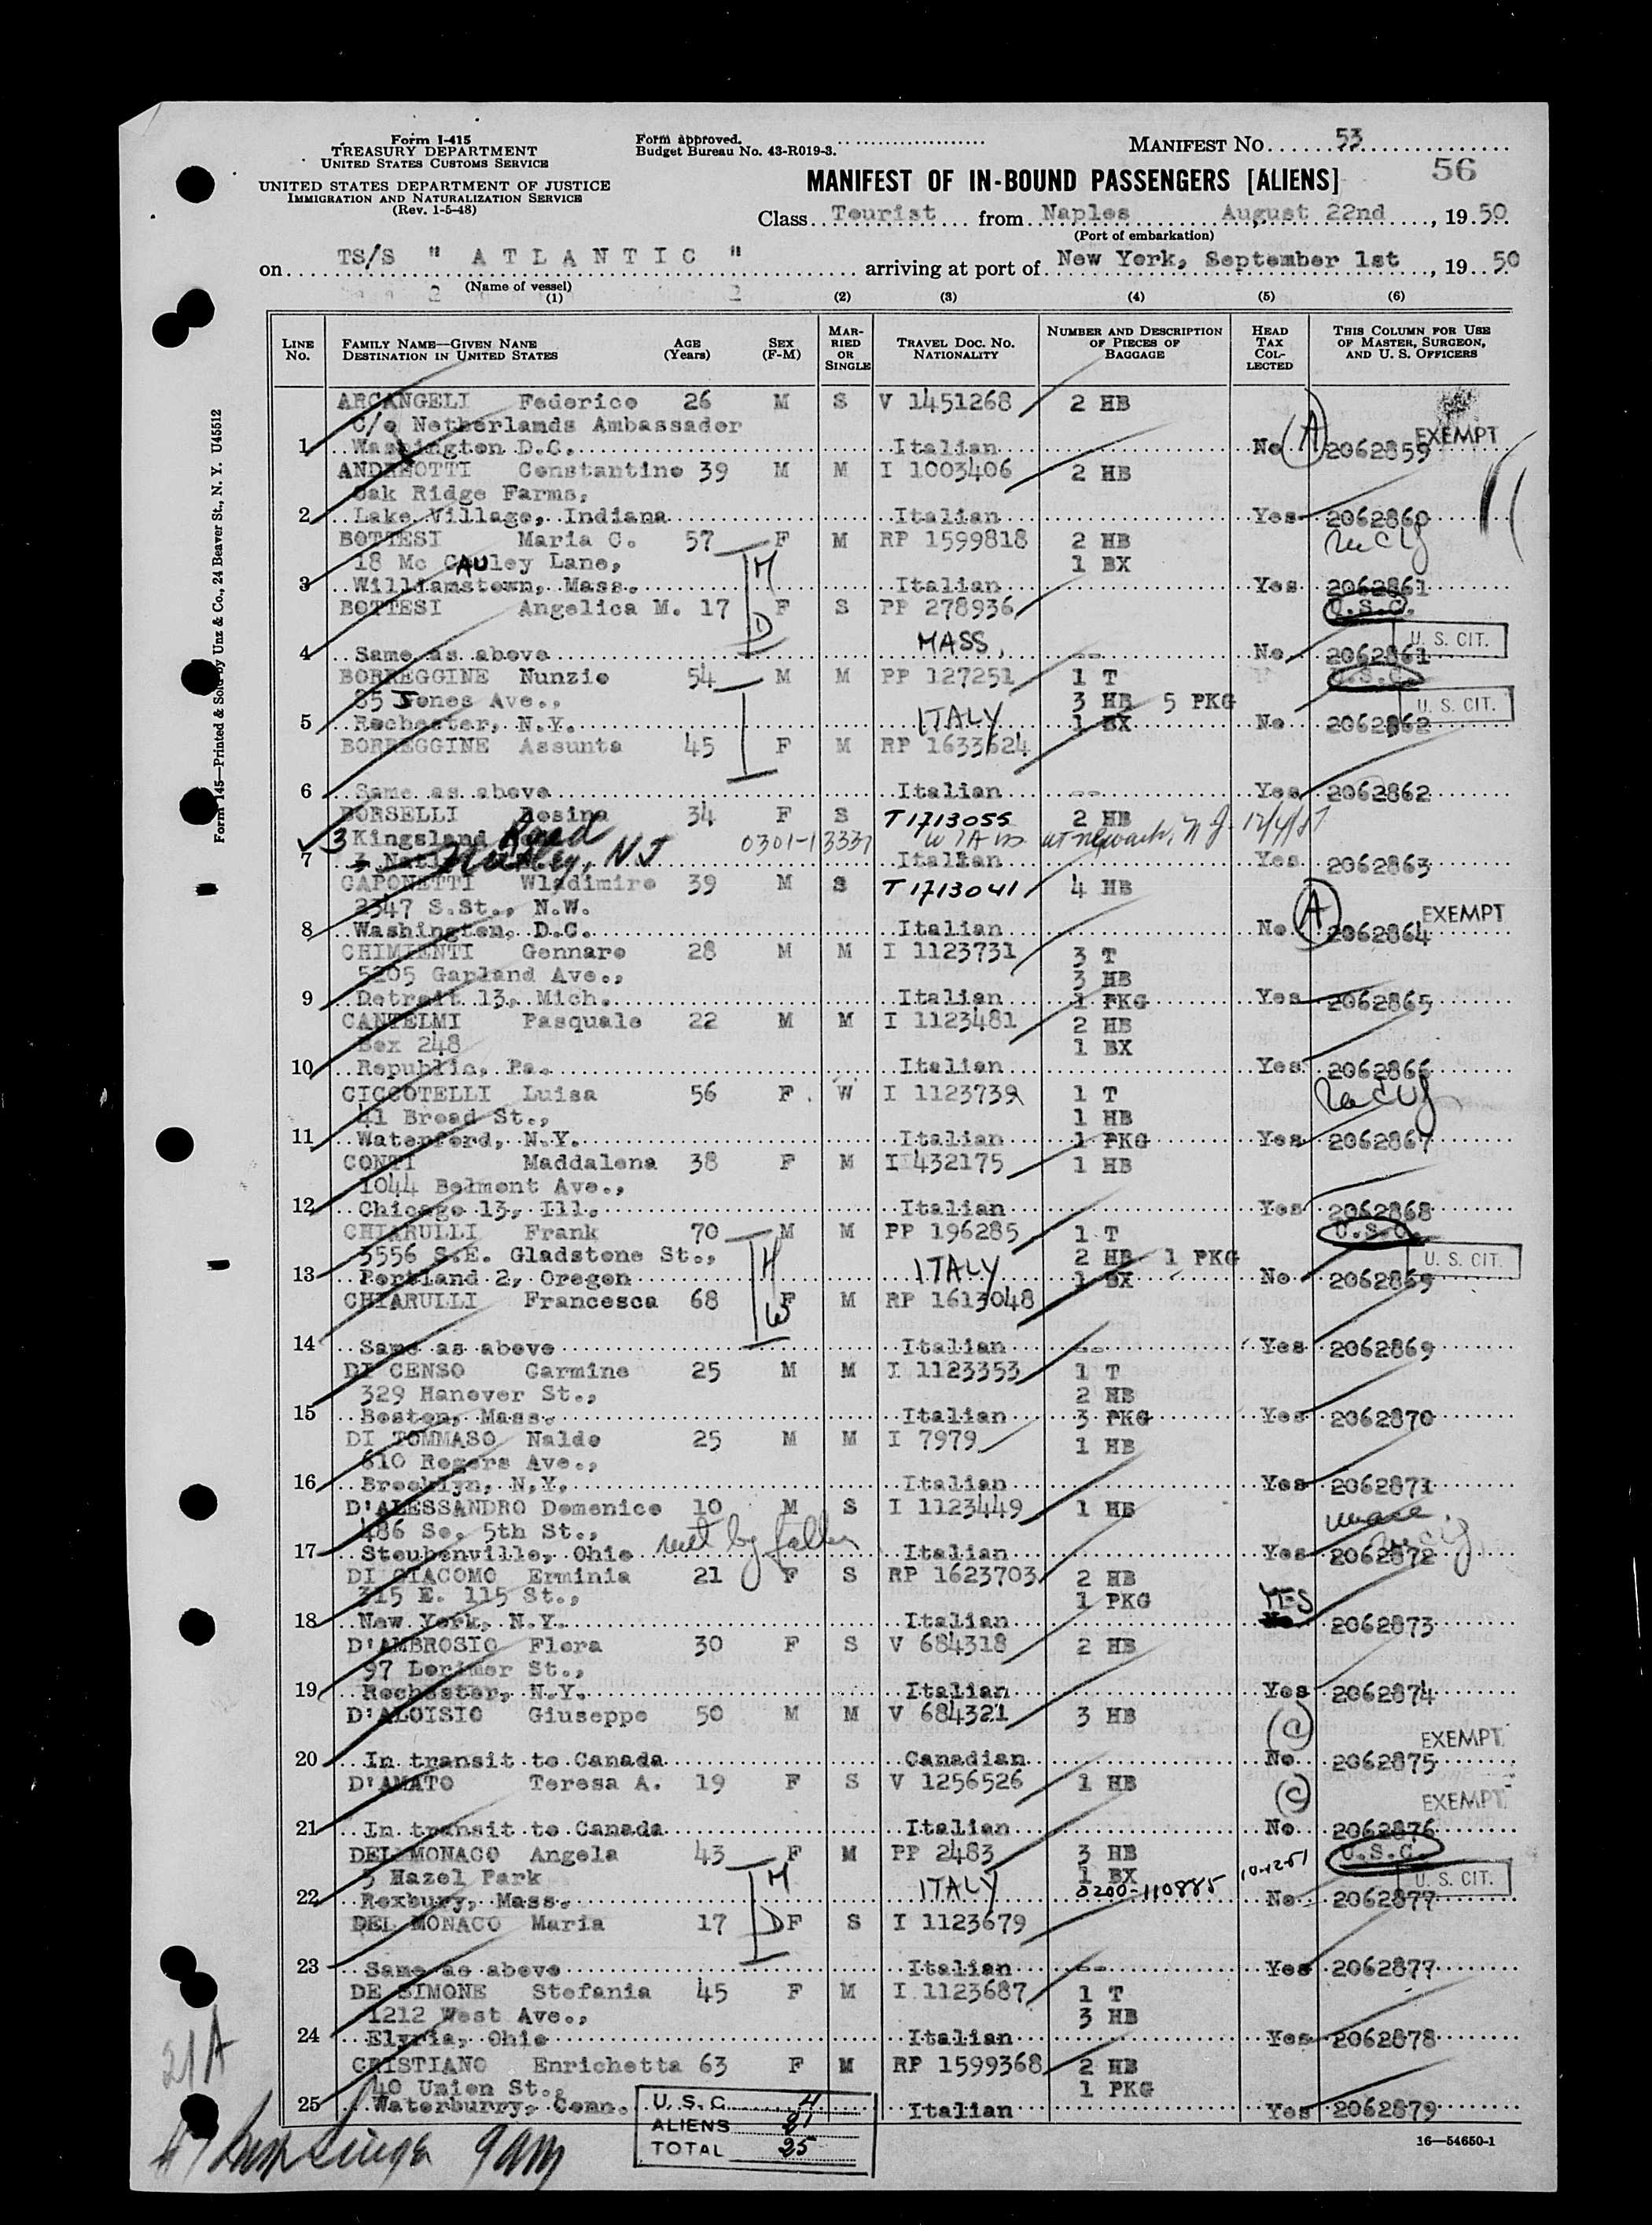 Form I-415
TREASURY DEPARTMENT
UNITED STATES CUSTOMS SERVICE
UNITED STATES DEPARTMENT OF JUSTICE
IMMIGRATION AND NATURALIZATION SERVICE
(Rev. 1-5-48)
Form approved.
Budget Bureau No. 43-R019-3.
MANIFEST NO. 53
56
MANIFEST OF IN-BOUND PASSENGERS [ALIENS]
Class Tourist from Naples August 22nd, 19 50
(Port of embarkation)
on TS/S " A T L A N T I C " arriving at port of New York, September 1st, 19 50
(Name of vessel)
(1) (2) (3) (4) (5) (6)
LINE No. FAMILY NAME—GIVEN NAME DESTINATION IN UNITED STATES AGE (Years) SEX (F-M) MARRIED OR SINGLE TRAVEL DOC. NO. NATIONALITY NUMBER AND DESCRIPTION OF PIECES OF BAGGAGE HEAD TAX COLLECTED THIS COLUMN FOR USE OF MASTER, SURGEON, AND U. S. OFFICERS
ARCANGELI Federico 26 M S V 1451268 2 HB
C/o Netherlands Ambassador EXEMPT
1 Washington D.C. Italian No (A) 2062859
ANDREOTTI Constantino 39 M M I 1003406 2 HB
Oak Ridge Farms,
2 Lake Village, Indiana Italian Yes 2062860
BOTTESI Maria C. 57 F M RP 1599818 2 HB
18 Mc CAUley Lane, M 1 BX
3 Williamstown, Mass. Italian Yes 2062861
BOTTESI Angelica M. 17 F S PP 278936 U.S.C.
D MASS. U. S. CIT.
4 Same as above -- No 2062861
BORREGGINE Nunzio 54 M M PP 127251 1 T U.S.C.
85 Jones Ave., 3 HB 5 PKG U. S. CIT.
5 Rochester, N.Y. ITALY 1 BX No 2062862
BORREGGINE Assunta 45 F M RP 1633624
6 Same as above Italian -- Yes 2062862
BORSELLI Rosina 34 F S T 1713055 2 HB
3 Kingsland Road 0301-13337 at Newark, N J 12/4/57
7 Nutley, NJ Italian Yes 2062863
CAPONETTI Wladimiro 39 M S T 1713041 4 HB
2347 S.St., N.W. EXEMPT
8 Washington, D.C. Italian No (A) 2062864
CHIMIENTI Gennaro 28 M M I 1123731 3 T
5205 Garland Ave., 3 HB
9 Detroit 13, Mich. Italian 1 PKG Yes 2062865
CANTELMI Pasquale 22 M M I 1123481 2 HB
Box 248 1 BX
10 Republic, Pa. Italian Yes 2062866
CICCOTELLI Luisa 56 F W I 1123739 1 T
41 Broad St., 1 HB
11 Waterford, N.Y. Italian 1 PKG Yes 2062867
CONTI Maddalena 38 F M I 432175 1 HB
1044 Belmont Ave.,
12 Chicago 13, Ill. Italian Yes 2062868
CHIARULLI Frank 70 M M PP 196285 1 T U.S.C.
3556 S.E. Gladstone St., H 2 HB 1 PKG U. S. CIT.
13 Portland 2, Oregon ITALY 1 BX No 2062869
CHIARULLI Francesca 68 F M RP 1613048
W
14 Same as above Italian -- Yes 2062869
DI CENSO Carmine 25 M M I 1123353 1 T
329 Hanover St., 2 HB
15 Boston, Mass. Italian 3 PKG Yes 2062870
DI TOMMASO Naldo 25 M M I 7979 1 HB
610 Rogers Ave.,
16 Brooklyn, N.Y. Italian Yes 2062871
D'ALESSANDRO Domenico 10 M S I 1123449 1 HB
486 So. 5th St.,
17 Steubenville, Ohio met by father Italian Yes 2062872
DI GIACOMO Erminia 21 F S RP 1623703 2 HB
315 E. 115 St., 1 PKG YES
18 New York, N.Y. Italian 2062873
D'AMBROSIO Flora 30 F S V 684318 2 HB
97 Lorimer St.,
19 Rochester, N.Y. Italian Yes 2062874
D'ALOISIO Giuseppe 50 M M V 684321 3 HB (C)
EXEMPT
20 In transit to Canada Canadian No 2062875
D'AMATO Teresa A. 19 F S V 1256526 1 HB (C)
EXEMPT
21 In transit to Canada Italian No 2062876
DEL MONACO Angela 43 F M PP 2483 3 HB U.S.C.
5 Hazel Park M 1 BX U. S. CIT.
22 Roxbury, Mass. ITALY 0200-110885 10-12-51 No 2062877
DEL MONACO Maria 17 D F S I 1123679
23 Same as above Italian -- Yes 2062877
DE SIMONE Stefania 45 F M I 1123687 1 T
1212 West Ave., 3 HB
24 Elyria, Ohio Italian Yes 2062878
CRISTIANO Enrichetta 63 F M RP 1599368 2 HB
40 Union St., 1 PKG
25 Waterburry, Conn. Italian Yes 2062879
U. S. C. 4
ALIENS 21
TOTAL 25
16—54650-1
21A
Form 145—Printed & Sold by Unz & Co., 24 Beaver St., N. Y. U45512